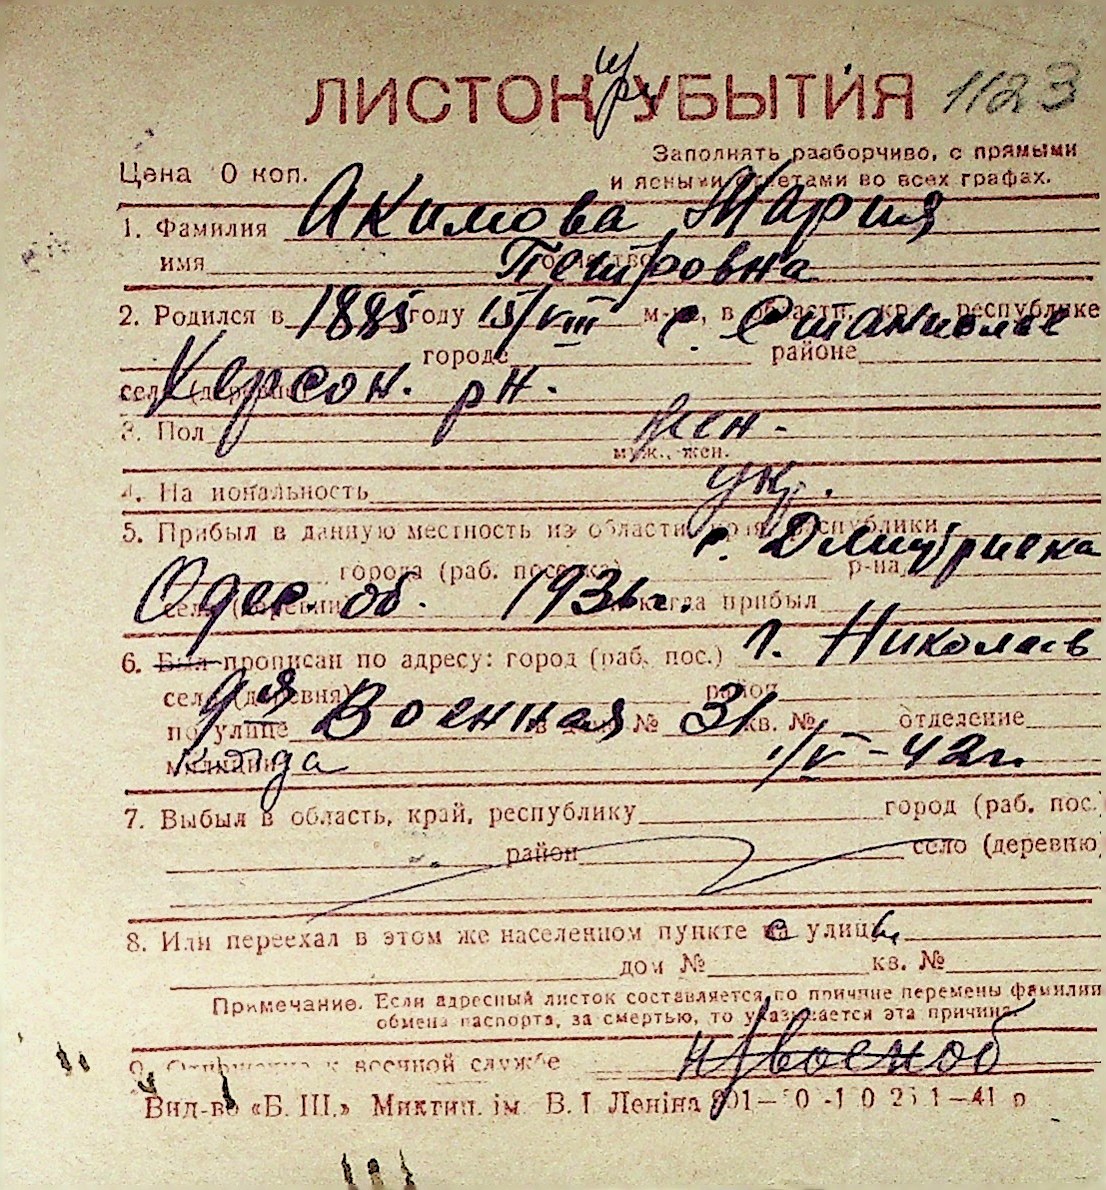 ЛИСТОК УБЫТИЯ 1123
при
Заполнять разборчиво, с прямыми
Цена 0 коп. и ясными ответами во всех графах.
1. Фамилия Акимова Мария
имя отчество Петровна
2. Родился в 1885 году 15/VIII м-ца, в области, крае, республике с. Станиславе
городе районе
селе (деревне) Херсон. рн.
3. Пол жен.
муж., жен.
4. Национальность укр.
5. Прибыл в данную местность из области, края, республики
города (раб. поселка) р-на с. Дмитриевка
села (деревни) Одес. об. 1936 г. и когда прибыл
6. Был прописан по адресу: город (раб. пос.) г. Николаев
село (деревня) район
по улице 9ая Военная в доме № 31 кв. № отделение
милиции когда 1/V-42г.
7. Выбыл в область, край, республику город (раб. пос.)
район село (деревню)
8. Или переехал в этом же населенном пункте с улицы
дом № кв. №
Примечание. Если адресный листок составляется по причине перемены фамилии
обмена паспорта, за смертью, то указывается эта причина
9. Отношение к военной службе н/военоб
Вид-во «Б. Ш.» Миктип. ім. В. І Леніна